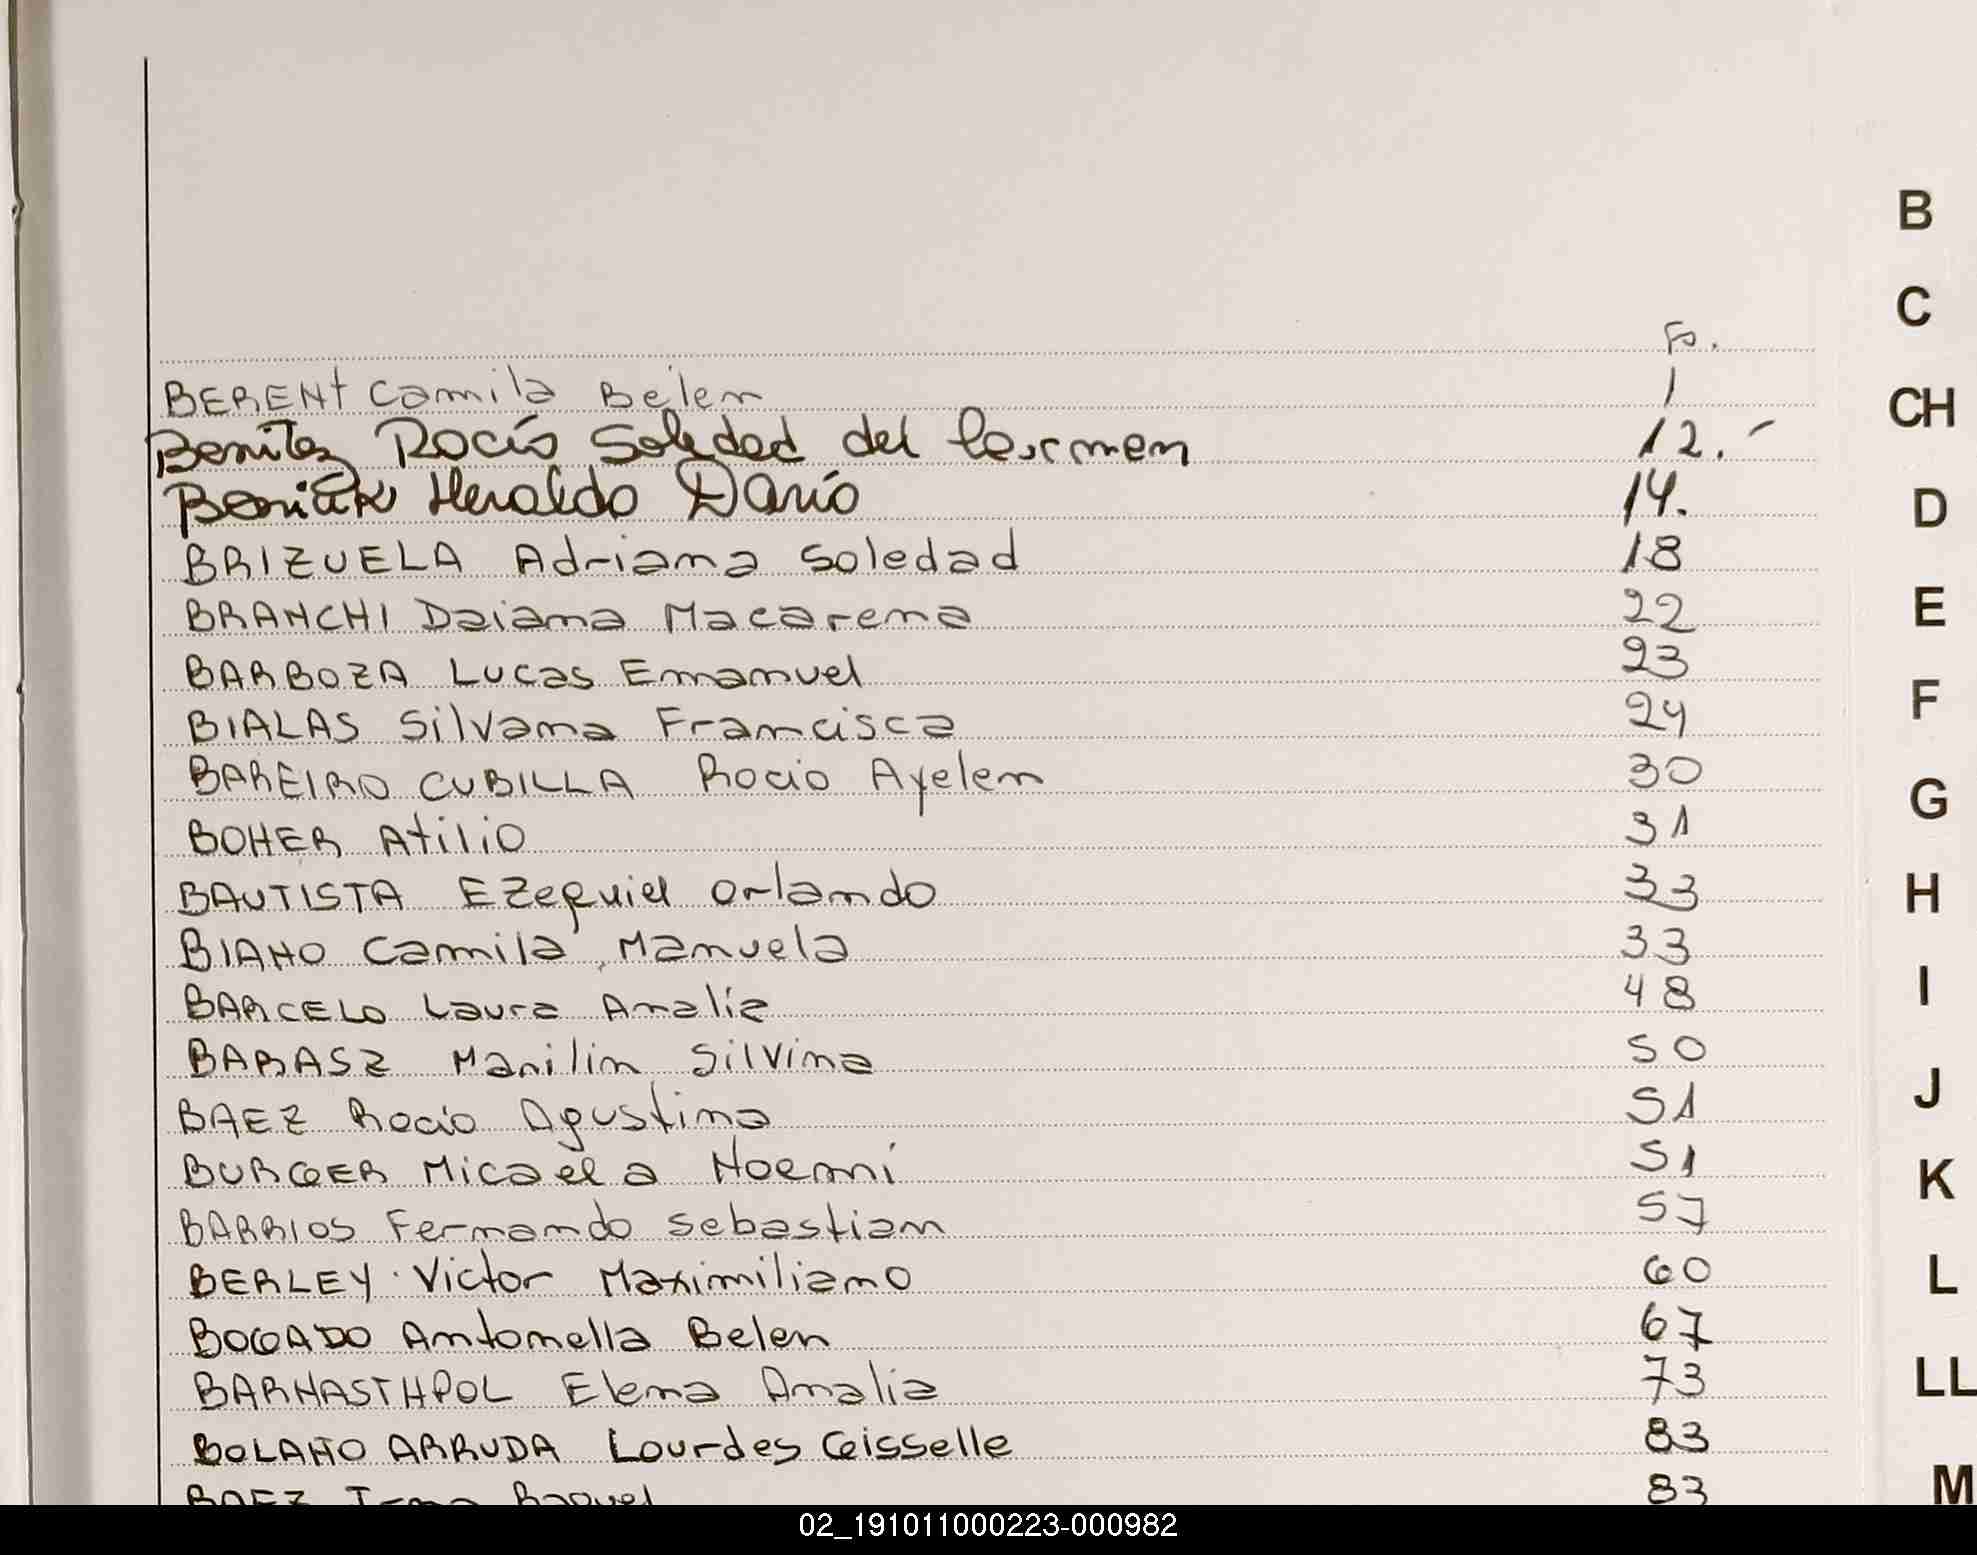 B
C
Fo.
BERENT Camila Belen 1
CH
Benitez Rocío Soledad del Carmen 12.-
Heraldo Darío 14.
D
BRIZUELA Adriana Soledad 18
BRANCHI Daiana Macarena 22
E
BARBOZA Lucas Emanuel 23
BIALAS Silvana Francisca 24
F
BAREIRO CUBILLA Rocio Ayelen 30
G
BOHER Atilio 31
BAUTISTA Ezequiel Orlando 33
H
BIANO Camila Manuela 33
BARCELO Laura Analia 48
I
BARASZ Marilin Silvina 50
BAEZ Rocio Agustina 51
J
BURGER Micaela Noemi 51
K
BARRIOS Fernando Sebastian 57
BERLEY Victor Maximiliano 60
L
BOGADO Antonella Belen 67
BARNASTHPOL Elena Analia 73
LL
BOLANO ARRUDA Lourdes Geisselle 83
BAEZ Raquel 83
M
02_191011000223-000982